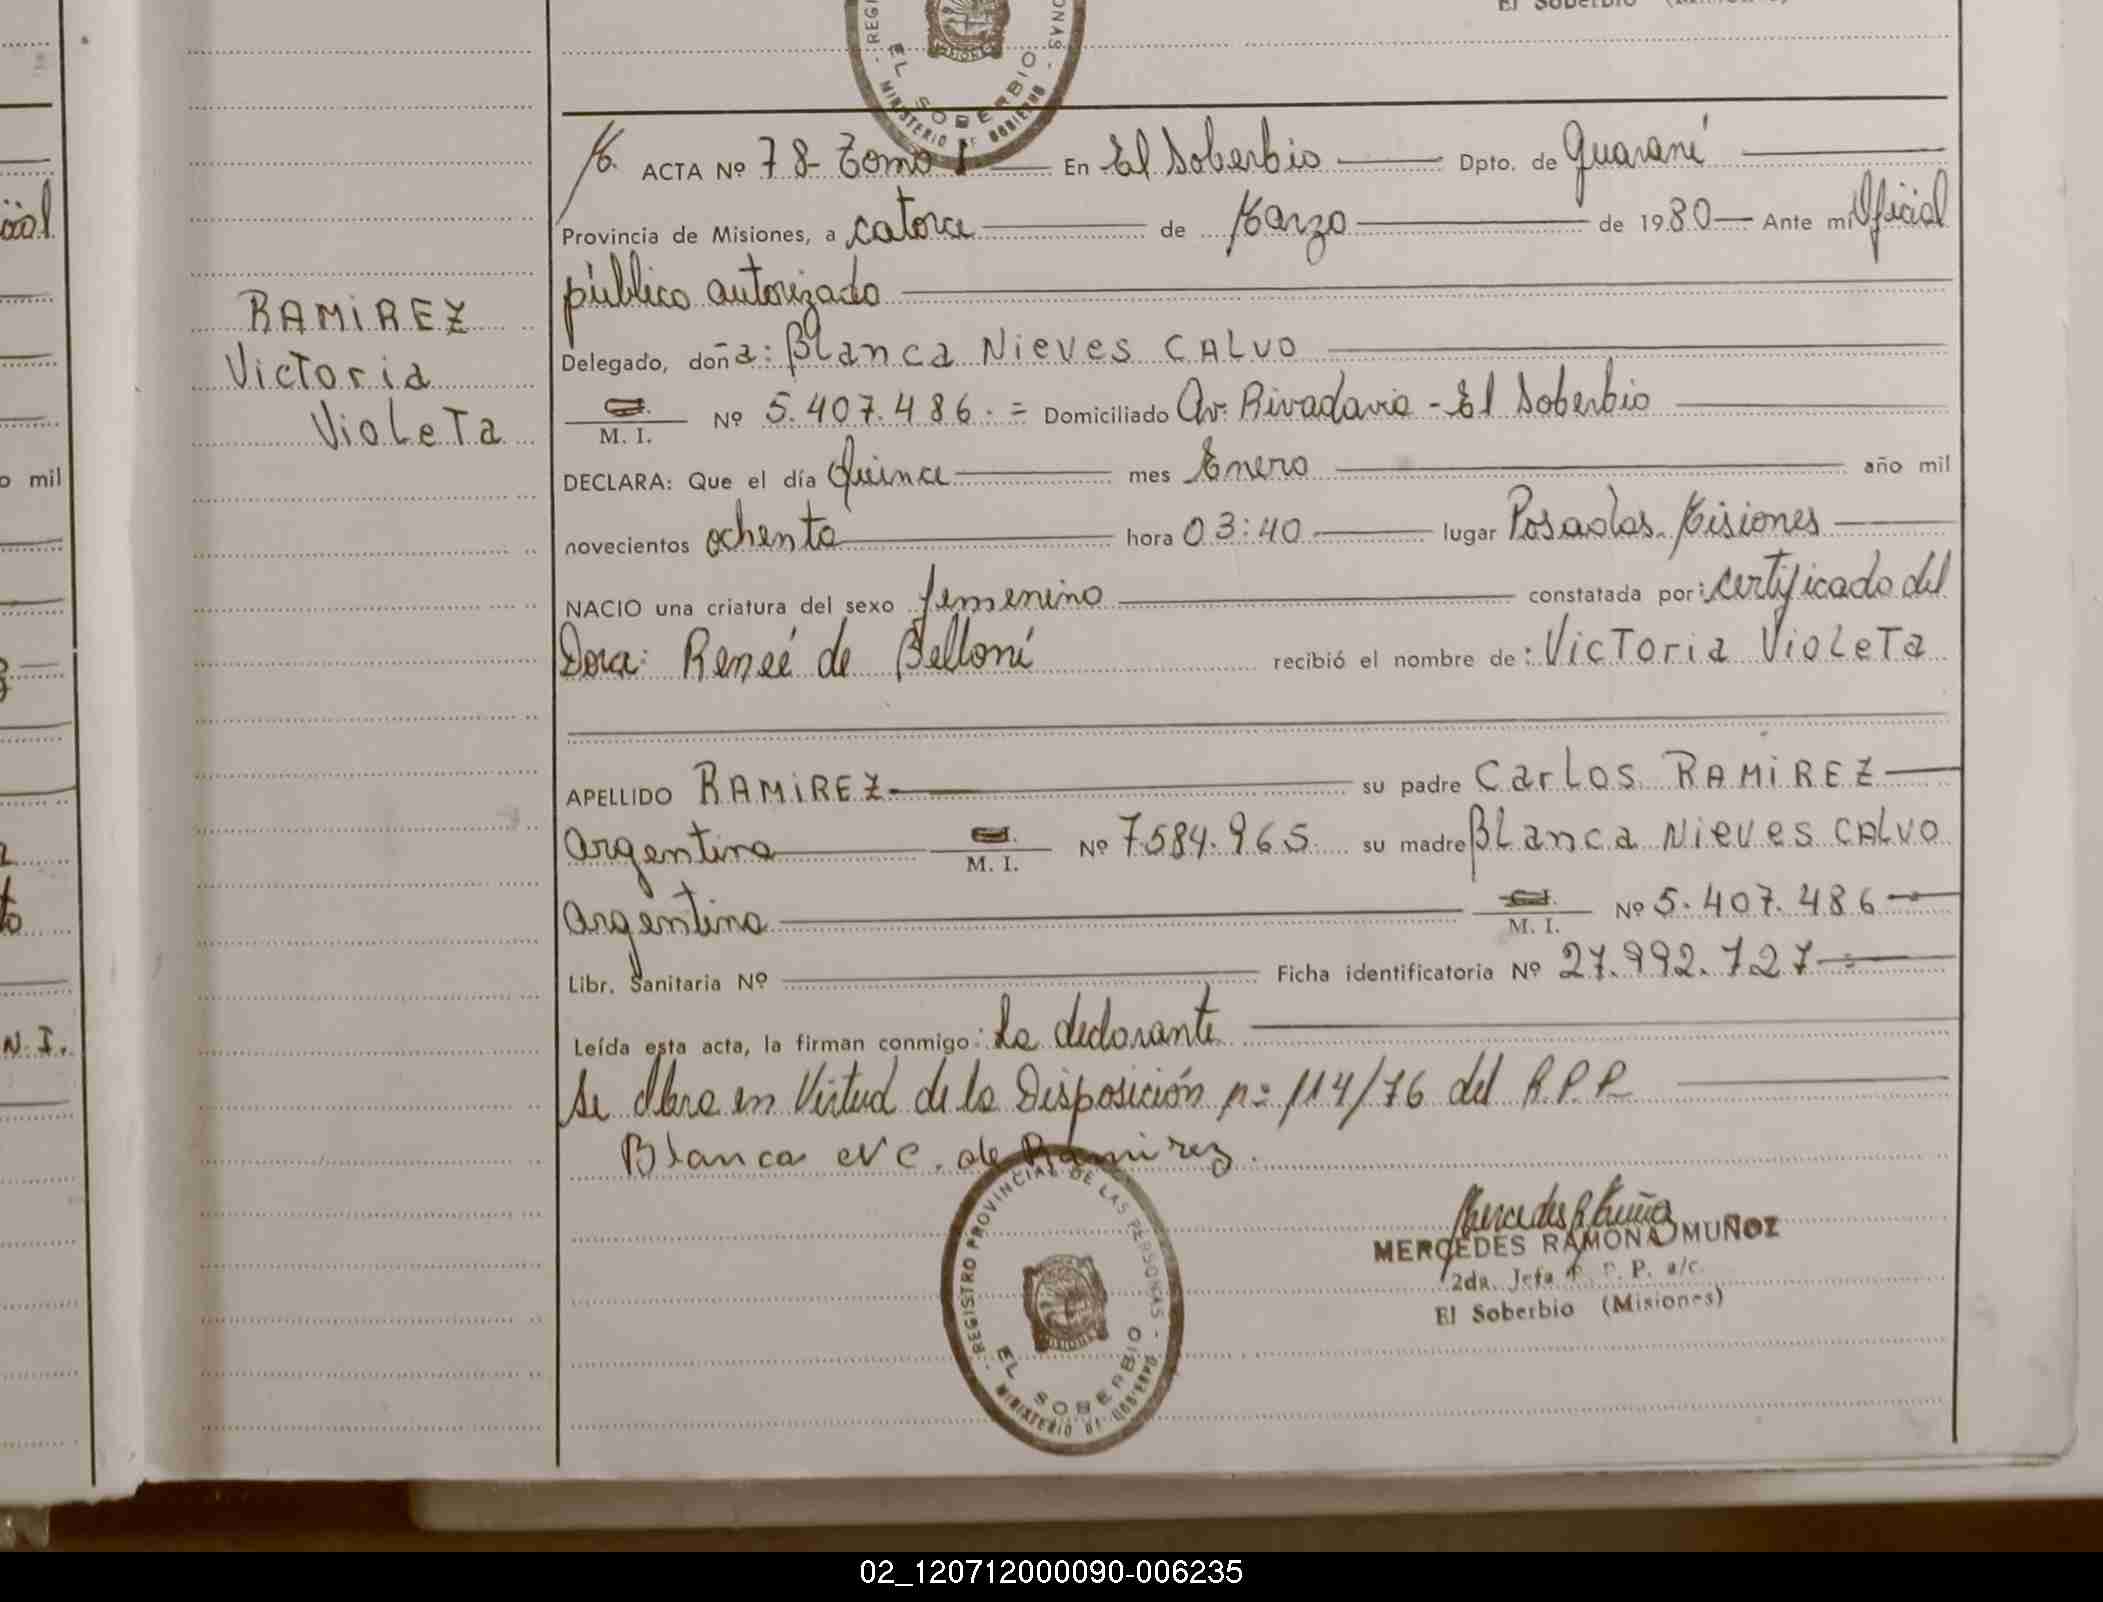 El Soberbio (Misiones)
EL SOBERBIO
MINISTERIO DE GOBIERNO
M. ACTA Nº 78- Tomo I En El Soberbio Dpto. de Guaraní
Provincia de Misiones, a catorce de Marzo de 1980 Ante mi Oficial
público autorizado
RAMIREZ
Victoria
Violeta
Delegado, doña: Blanca Nieves CALVO
M. I. Nº 5.407.486.= Domiciliado Av. Rivadavia - El Soberbio
DECLARA: Que el día Quince mes Enero año mil
novecientos ochenta hora 03:40 lugar Posadas. Misiones
NACIO una criatura del sexo femenino constatada por: certificado del
Dora: Reneé de Belloní recibió el nombre de: Victoria Violeta
APELLIDO RAMIREZ su padre Carlos RAMIREZ
Argentino M. I. Nº 7584.965 su madre Blanca Nieves CALVO
Argentina M. I. Nº 5.407.486
Libr. Sanitaria Nº Ficha identificatoria Nº 27.992.727
Leída esta acta, la firman conmigo: La declarante
Se Labra en Virtud de la Disposición nº 114/76 del R.P.P.
Blanca N C. de Ramirez.
REGISTRO PROVINCIAL DE LAS PERSONAS
EL SOBERBIO
MINISTERIO DE GOBIERNO
MERCEDES RAMONA MUÑOZ
2da. Jefa R. P. P. a/c.
El Soberbio (Misiones)
o mil
N. I.
02_120712000090-006235